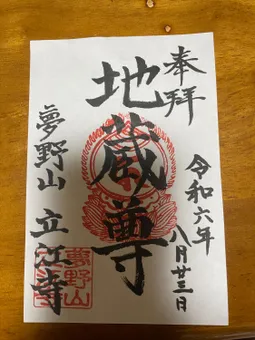 奉拝
令和六年
八月廿三日
地蔵尊
夢野山 立江寺
夢野山